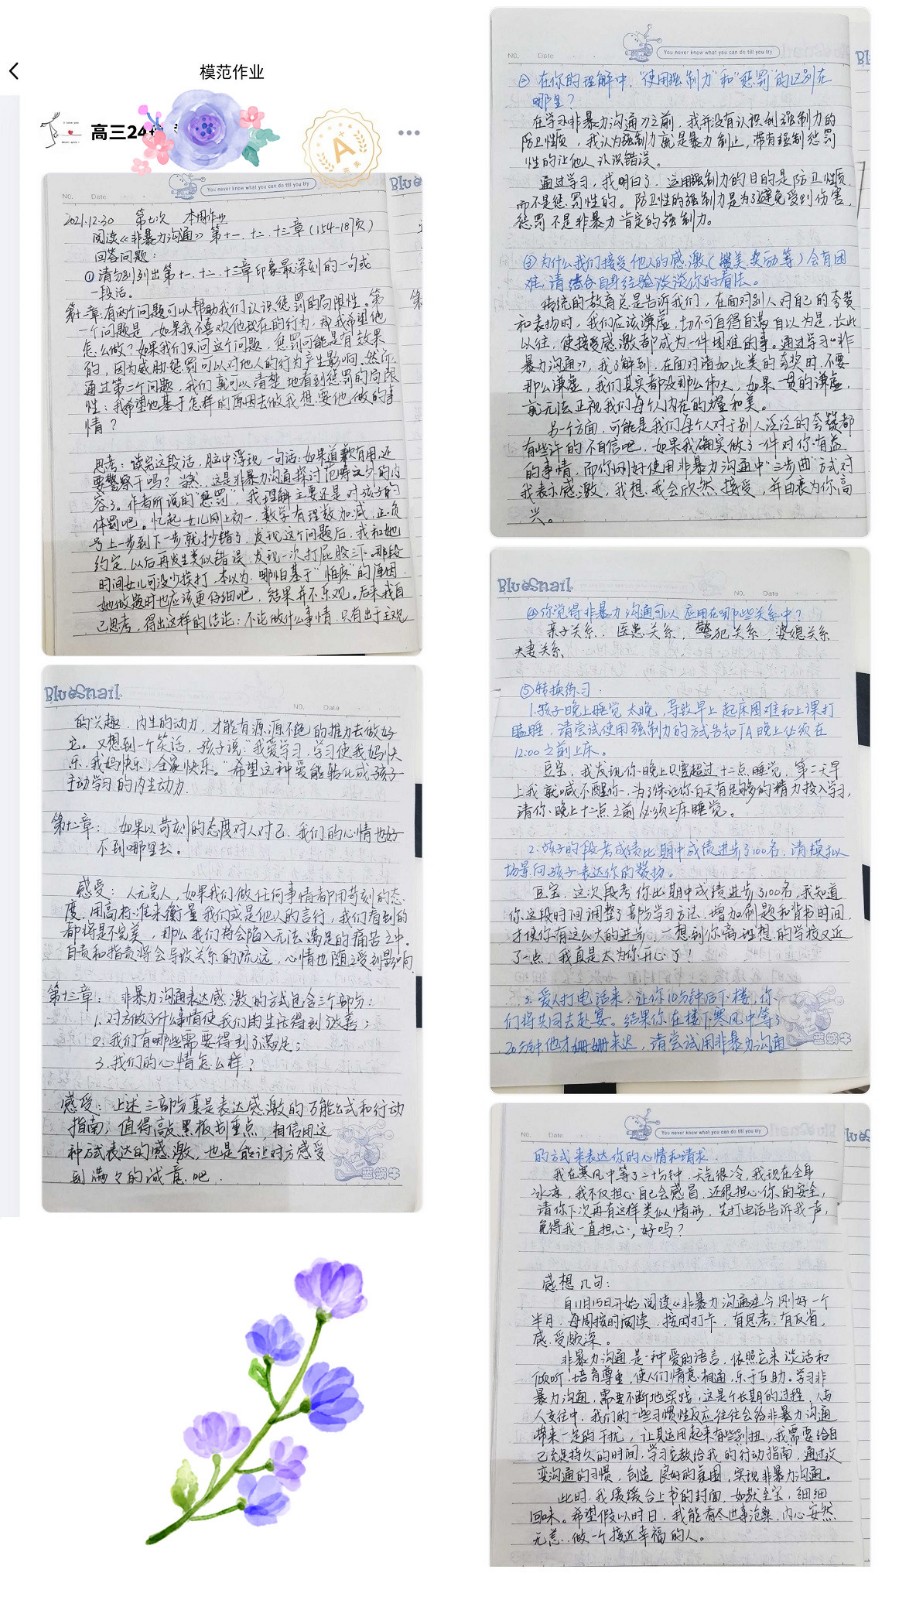 模范作业
高三24
A
NO. Date
You never know what you can do till you try
2021.12.30 第七次 本周作业
阅读《非暴力沟通》第十一、十二、十三章(154-181页)
回答问题:
①请分别列出第十一、十二、十三章印象最深刻的一句或
一段话。
第十一章:有两个问题可以帮助我们认识惩罚的局限性。第
一个问题是:如果我不喜欢他现在的行为,那我希望他
怎么做?如果我们只问这个问题,惩罚可能是有效果
的,因为威胁惩罚可以对他人的行为产生影响。然而,
通过第二个问题,我们就可以清楚地看到惩罚的局限
性:我希望他基于怎样的原因去做我想要他做的事
情?
思考:读完这段话,脑中浮现一句话:如果道歉有用,还
要警察干吗?当然,这是非暴力沟通探讨范畴之外的内
容了。作者所说的"惩罚",我理解主要还是对孩子的
体罚吧。忆起女儿刚上初一,数学有理数加减,正负
号上一步到下一步就抄错了,发现这个问题后,我和她
约定,以后再发生类似错误,发现一次打屁股三下。那段
时间女儿可没少挨打,本以为,哪怕基于"怕疼"的原因
她做题时也应该更仔细吧,结果并不乐观。后来我自
己思考,得出这样的结论:不论做什么事情,只有出于主观
BlueSnail
NO. Date
的兴趣,内生的动力,才能有源源不绝的推力去做好
它。又想到一个笑话,孩子说:"我爱学习,学习使我妈快
乐,我妈快乐,全家快乐。"希望这种爱能转化成孩子
主动学习的内生动力.
第十二章: 如果以苛刻的态度对人对己,我们的心情也好
不到哪里去。
感受:人无完人,如果我们做任何事情都用苛刻的态
度,用高标准来衡量我们或是他人的言行,我们看到的
都将是不完美,那么我们将会陷入无法满足的痛苦之中.
自责和指责将会导致关系的疏远,心情也随之受到影响.
第十三章: 非暴力沟通表达感激的方式包含三个部分:
1.对方做了什么事情使我们的生活得到改善;
2.我们有哪些需要得到了满足;
3.我们的心情怎么样?
感受:上述三部分真是表达感激的万能公式和行动
指南,值得敲黑板划重点,相信用这
种方式表达的感激,也是能让对方感受
到满々的诚意吧.
NO. Date
You never know what you can do till you try
②在你的理解中,"使用强制力"和"惩罚"的区别在
哪里?
在学习非暴力沟通力之前,我并没有认识到强制力的
防卫性质,我认为强制力就是暴力制止,带有强制惩罚
性的让他人认识错误。
通过学习,我明白了,运用强制力的目的是防卫性质
而不是惩罚性的。防卫性的强制力是为了避免受到伤害,
惩罚不是非暴力肯定的强制力。
③为什么我们接受他人的感激(赞美、奖励等)会有困
难,请结合自身经验谈谈你的看法。
传统的教育总是告诉我们,在面对别人对自己的夸赞
和表扬时,我们应该谦虚,切不可自得自满自以为是,长此
以往,使接受感激都成为一件困难的事。通过学习《非
暴力沟通》,我了解到,在面对诸如此类的夸奖时,不要
那么谦虚,我们其实都没那么伟大,如果一贯的谦虚,
就无法正视我们每个人内在的力量和美。
另一个方面,可能是我们每个人对于别人泛泛的夸赞都
有些许的不自信吧,如果我确实做了一件对你有益
的事情,而你刚好使用非暴力沟通中"三步曲"方式对
我表示感激,我想,我会欣然接受,并由衷为你高
兴。
BlueSnail
NO. Date
④你觉得非暴力沟通可以应用在哪些关系中?
亲子关系,医患关系,警犯关系,婆媳关系
夫妻关系
⑤转换练习.
1.孩子晚上睡觉太晚,导致早上起床困难和上课打
瞌睡,请尝试使用强制力的方式告知TA晚上必须在
12:00之前上床。
豆宝,我发现你晚上只要超过十二点睡觉,第二天早
上我就喊不醒你。为了保证你白天有足够的精力投入学习,
请你晚上十二点之前必须上床睡觉。
2.孩子的段考成绩比期中成绩进步了100名,请模拟
场景向孩子表达你的赞扬。
豆宝,这次段考你比期中成绩进步了100名,我知道
你这段时间调整了部分学习方法,增加刷题和背书时间,
才使你有这么大的进步,一想到你离理想的学校又近
了一点,我真是太为你开心了!
3.爱人打电话来,让你10分钟后下楼,你
们将共同去赴宴。结果你在楼下寒风中等了
20分钟他才姗姗来迟,请尝试用非暴力沟通
NO. Date
You never know what you can do till you try
的方式来表达你的心情和请求.
我在寒风中等了二十分钟,天气很冷,我现在全身
冰凉,我不仅担心自己会感冒,还很担心你的安全,
请你下次再有这样类似情形,先打电话告诉我一声,
免得我一直担心,好吗?
感想几句:
自11月15日开始阅读《非暴力沟通》至今刚好一个
半月,每周按时阅读,按时打卡,有思考,有反省,
感受颇深。
非暴力沟通是一种爱的语言,依照它来谈话和
倾听,培育尊重,使人们情意相通,乐于互助。学习非
暴力沟通,需要不断地实践,这是个长期的过程,与
人交往中,我们的一些习惯性反应往往会给非暴力沟通
带来一定的干扰,让其运用起来有些别扭,我需要给自
己充足持久的时间,学习它教给我的行动指南,通过改
变沟通的习惯,创造良好的氛围,实现非暴力沟通。
此时,我缓缓合上书的封面,如获至宝,细细
回味。希望假以时日,我能有尽世事沧桑,内心安然
无恙,做一个接近幸福的人。